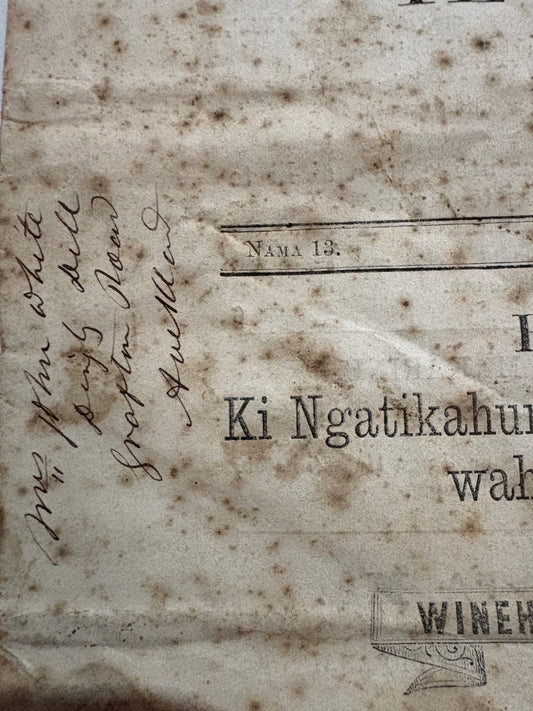 Mrs John White
Dingle Dell
Grafton Road
Auckland
NAMA 13.
Ki Ngatikahu
wah
WINEH